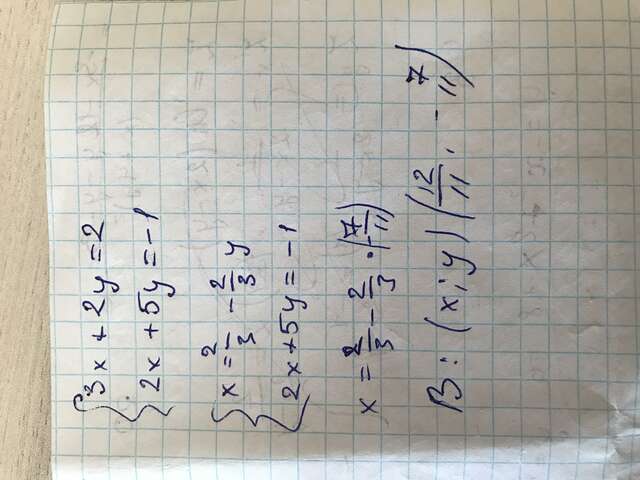 3x + 2y = 2
2x + 5y = -1
x = 2/3 - 2/3 y
2x + 5y = -1
x = 2/3 - 2/3 · (-7/11)
В: (x; y) (12/11 ; -7/11)